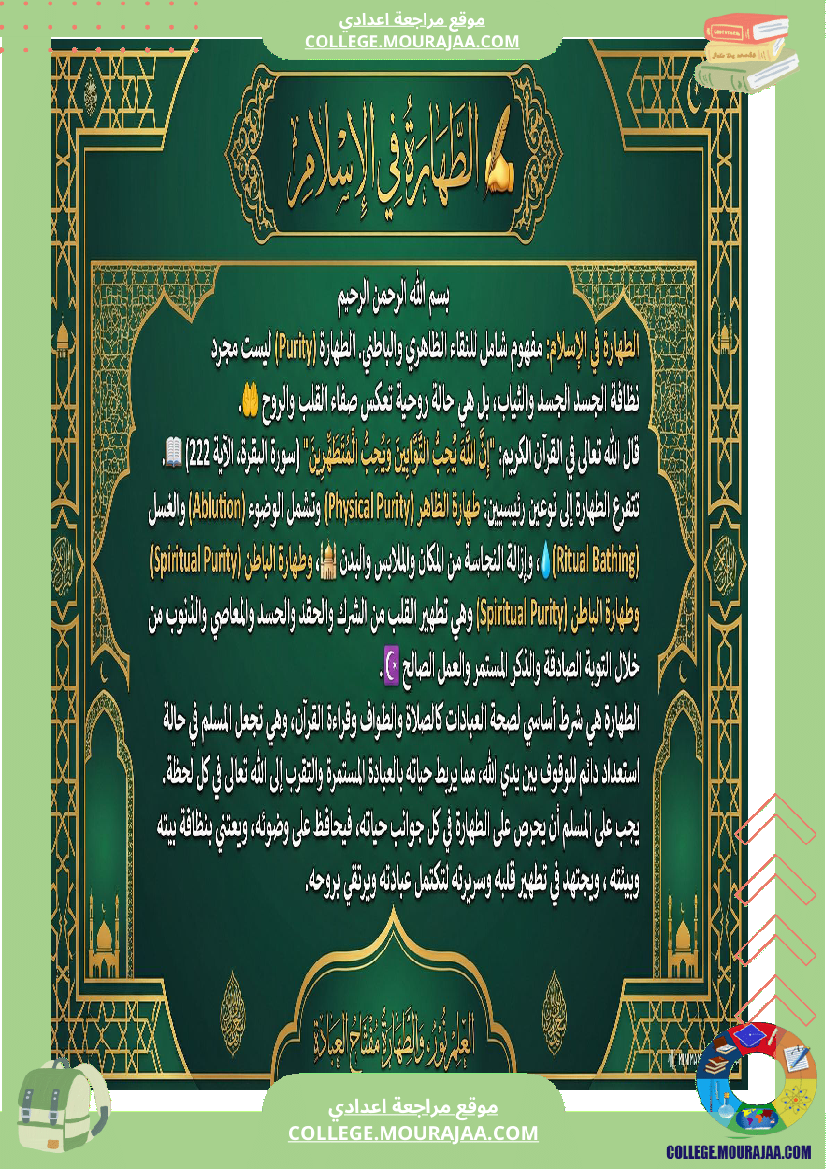 موقع مراجعة اعدادي
COLLEGE.MOURAJAA.COM
الطَّهَارَةُ فِي الإِسْلَامِ
بسم الله الرحمن الرحيم
الطهارة في الإسلام: مفهوم شامل للنقاء الظاهري والباطني. الطهارة (Purity) ليست مجرد
نظافة الجسد الجسد والثياب، بل هي حالة روحية تعكس صفاء القلب والروح 🤲.
قال الله تعالى في القرآن الكريم: "إِنَّ اللَّهَ يُحِبُّ التَّوَّابِينَ وَيُحِبُّ الْمُتَطَهِّرِينَ" (سورة البقرة، الآية 222) 📖.
تتفرع الطهارة إلى نوعين رئيسيين: طهارة الظاهر (Physical Purity) وتشمل الوضوء (Ablution) والغسل
(Ritual Bathing) 💧، وإزالة النجاسة من المكان والملابس والبدن 🕌، وطهارة الباطن (Spiritual Purity)
وطهارة الباطن (Spiritual Purity) وهي تطهير القلب من الشرك والحقد والحسد والمعاصي والذنوب من
خلال التوبة الصادقة والذكر المستمر والعمل الصالح ☪.
الطهارة هي شرط أساسي لصحة العبادات كالصلاة والطواف وقراءة القرآن، وهي تجعل المسلم في حالة
استعداد دائم للوقوف بين يدي الله، مما يربط حياته بالعبادة المستمرة والتقرب إلى الله تعالى في كل لحظة.
يجب على المسلم أن يحرص على الطهارة في كل جوانب حياته، فيحافظ على وضوئه، ويعتني بنظافة بيته
وبيئته ، ويجتهد في تطهير قلبه وسريرته لتكتمل عبادته ويرتقي بروحه.
العِلْمُ نُورٌ، وَالطَّهَارَةُ مِفْتَاحُ العِبَادَةِ
موقع مراجعة اعدادي
COLLEGE.MOURAJAA.COM
COLLEGE.MOURAJAA.COM